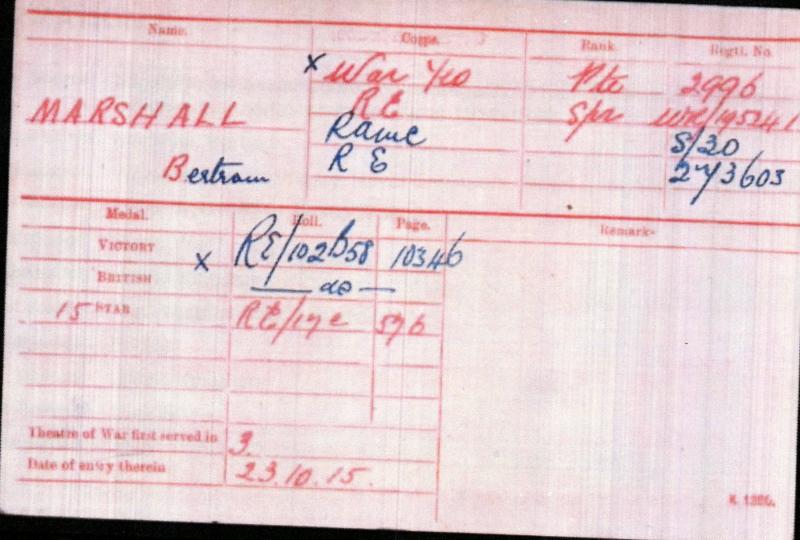 Name. Corps. Rank. Regtl. No.
x War Yeo Pte 2996
MARSHALL RE Spr WR/195241
RAMC S/20
Bertram R E 273603
Medal. Roll. Page. Remarks
VICTORY x RE/102B58 10346
BRITISH — do —
15 STAR RE/17C 576
Theatre of War first served in 3.
Date of entry therein 23.10.15.
K 1380.